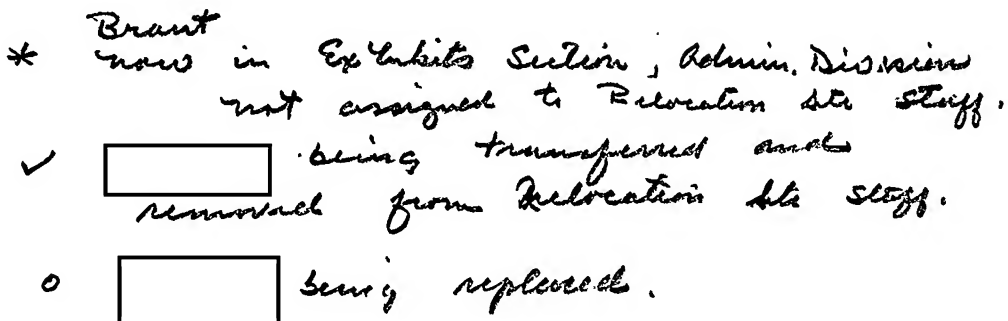 Brant
* now in Exhibits Section, Admin. Division
not assigned to Relocation Site Staff.
✓ being transferred and
removed from Relocation Site Staff.
o being replaced.